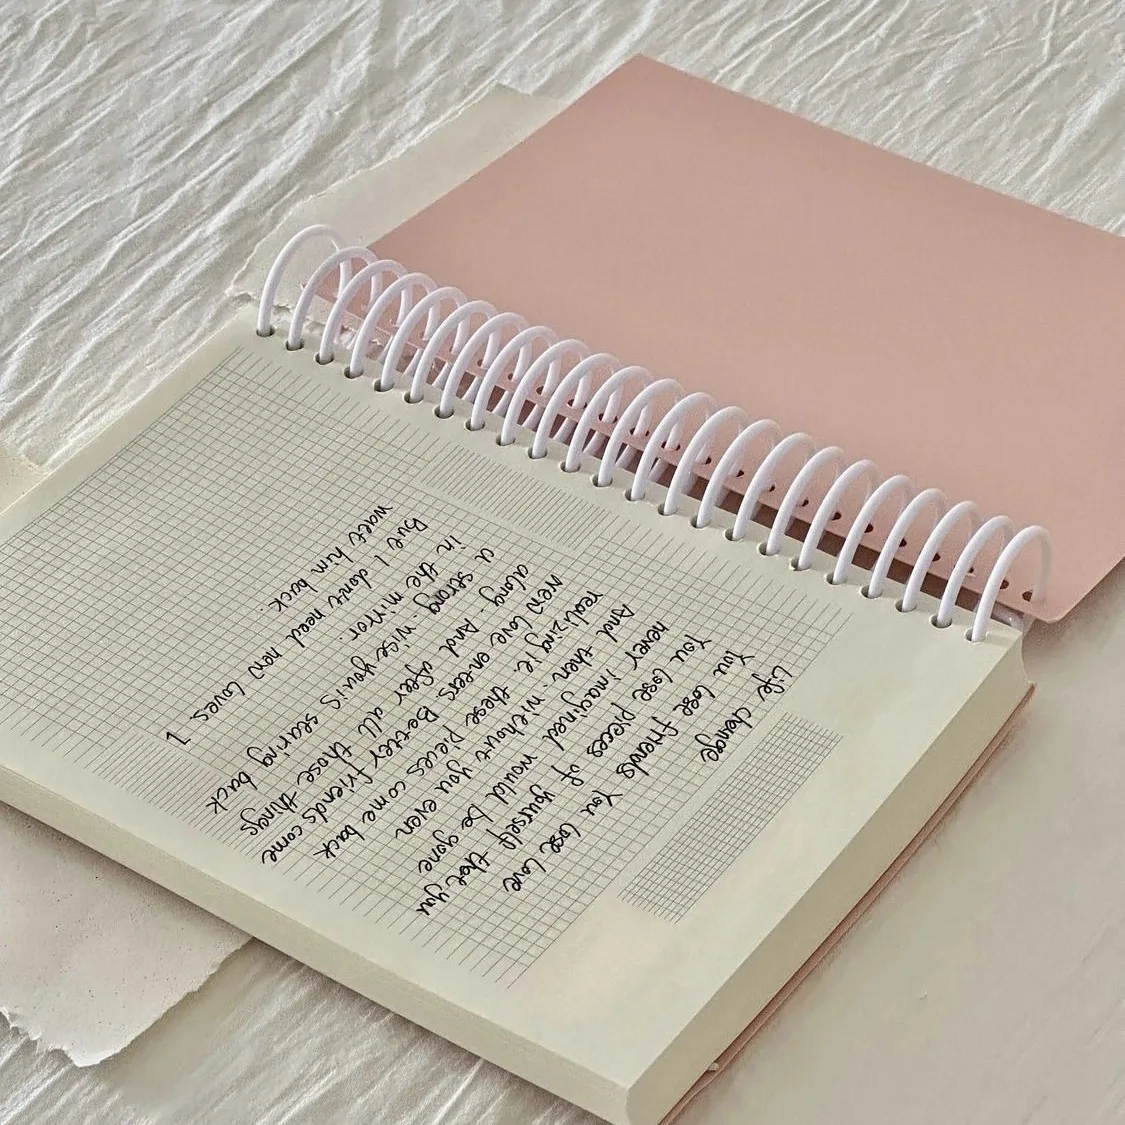 Life change
You lose friends You lose love
You lose pieces of yourself that you
never imagined would be gone
And then. without you even
realizing it these pieces come back
New love enters. Better friends come
along. And after all those things
a strong. wise you is staring back
in the mirror.
But I don't need new loves.
want him back.
1